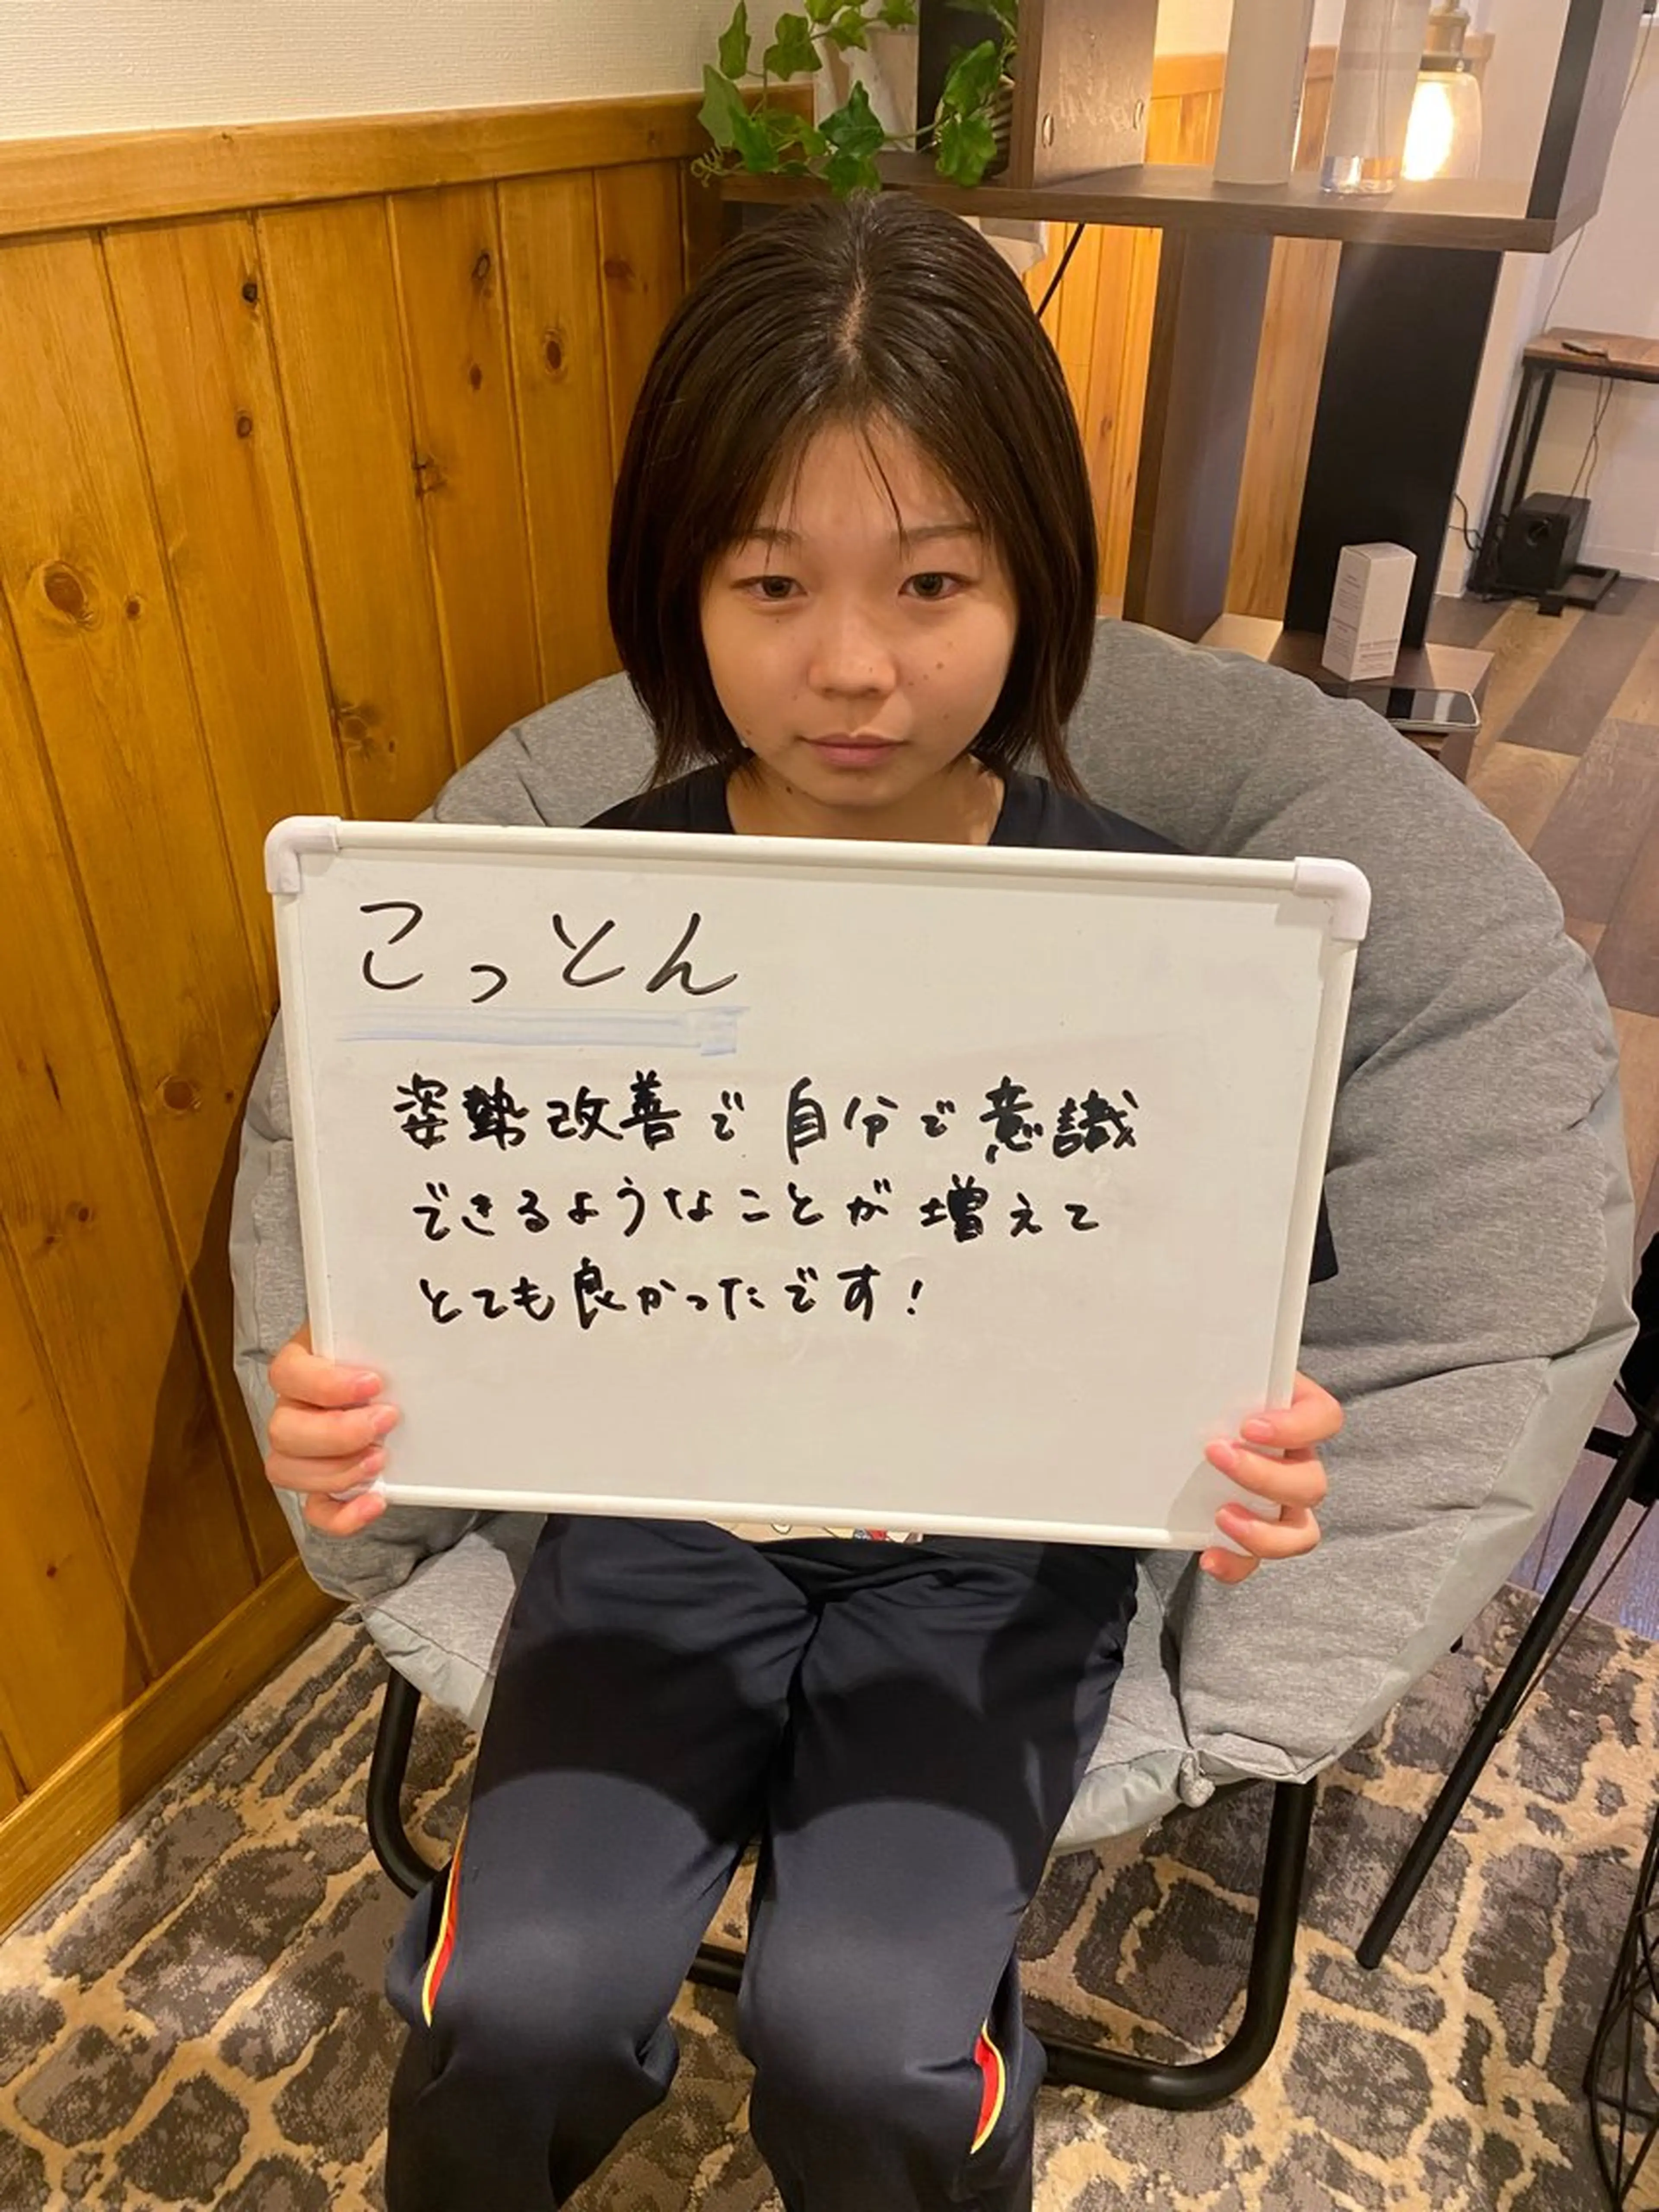 こっとん
姿勢改善で自分で意識
できるようなことが増えて
とても良かったです!